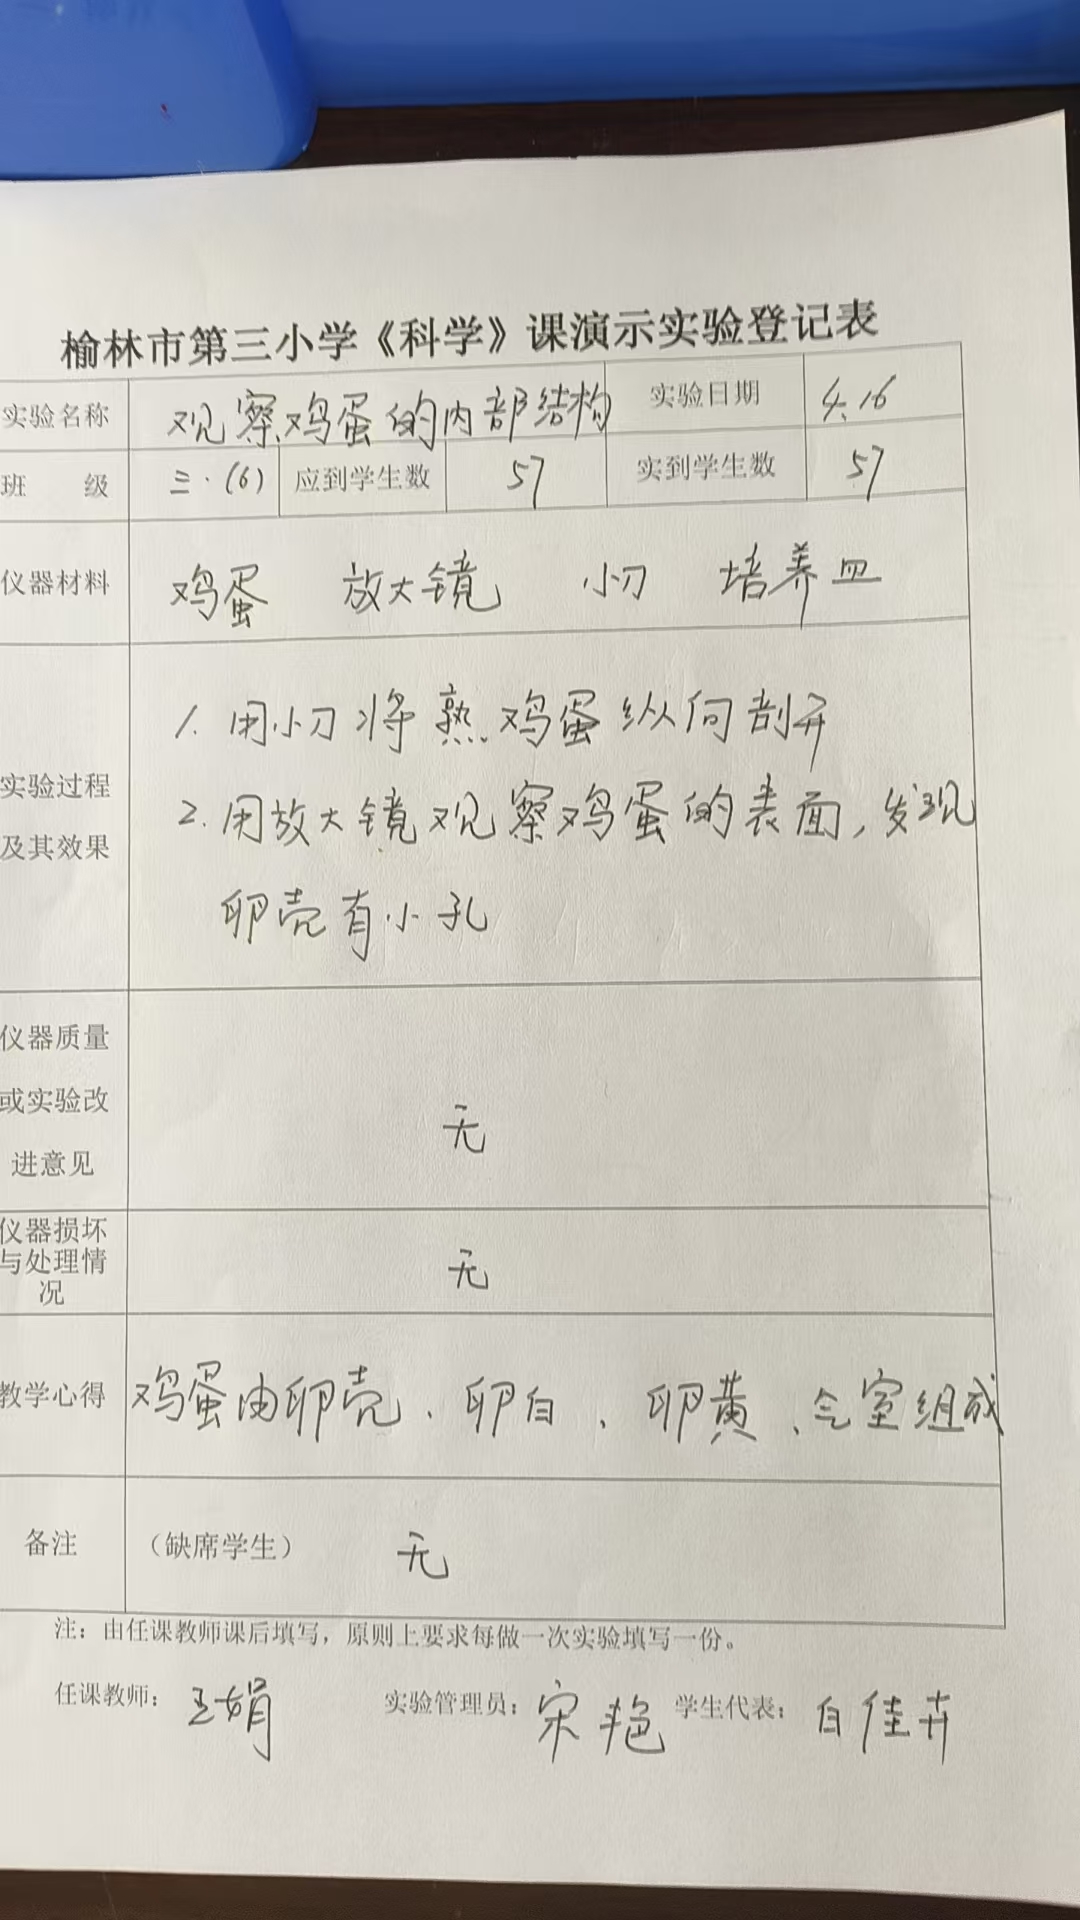 榆林市第三小学《科学》课演示实验登记表
实验名称 观察鸡蛋的内部结构 实验日期 4.16
班 级 三.(6) 应到学生数 57 实到学生数 57
仪器材料 鸡蛋 放大镜 小刀 培养皿
1. 用小刀将熟鸡蛋纵向剖开
实验过程
2. 用放大镜观察鸡蛋的表面，发现
及其效果
卵壳有小孔
仪器质量
或实验改
进意见
无
仪器损坏
与处理情
况
无
教学心得 鸡蛋由卵壳、卵白、卵黄、气室组成
备注 （缺席学生） 无
注：由任课教师课后填写，原则上要求每做一次实验填写一份。
任课教师：王娟 实验管理员：宋艳 学生代表：白佳卉